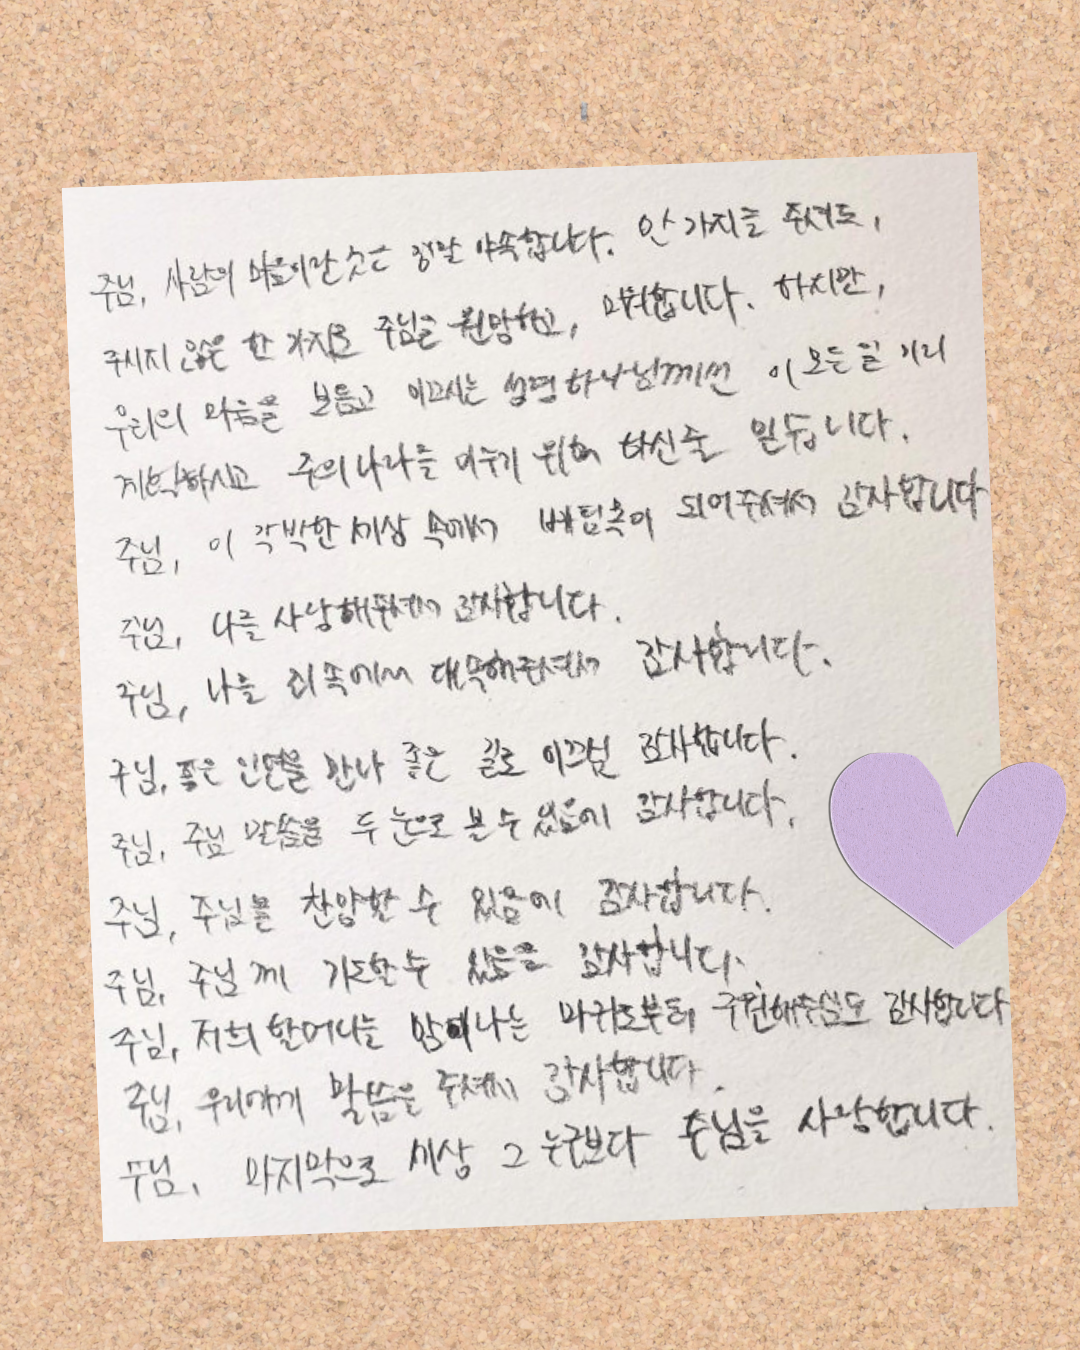 주님, 사람의 마음이란 것은 정말 야속합니다. 만 가지를 주셔도,
주시지 않은 한 가지로 주님을 원망하고, 미워합니다. 하지만,
우리의 마음을 보듬고 이끄시는 성령하나님께선 이 모든 일 미리
계획하시고 주의 나라를 이루기 위해 하신줄 믿습니다.
주님, 이 각박한 세상 속에서 버팀목이 되어주셔서 감사합니다
주님, 나를 사랑해주셔서 감사합니다.
주님, 나를 죄 속에서 대속해주셔서 감사합니다.
주님, 좋은 인연을 만나 좋은 길로 이끄심 감사합니다.
주님, 주님 말씀을 두 눈으로 본 수 있음에 감사합니다.
주님, 주님을 찬양할 수 있음에 감사합니다.
주님, 주님께 기도할 수 있음을 감사합니다.
주님, 저희 할머니를 마귀로부터 구원해주심도 감사합니다
주님, 우리에게 말씀을 주셔서 감사합니다.
주님, 마지막으로 세상 그 누구보다 주님을 사랑합니다.